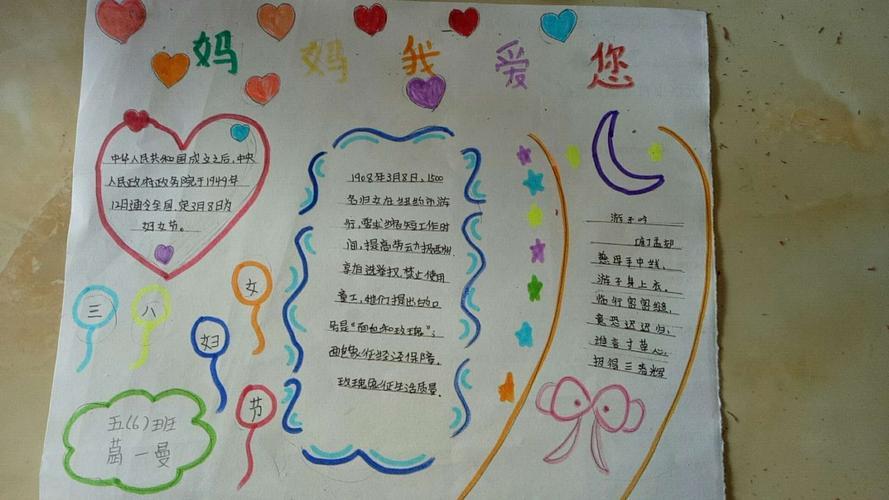 妈妈我爱您
中华人民共和国成立之后,中央
人民政府政务院于1949年
12月通令全国,定3月8日为
妇女节。
三八妇女节
五(6)班
一曼
1908年3月8日,1500
名妇女在纽约市游
行,要求缩短工作时
间,提高劳动报酬,
享有选举权,禁止使用
童工,她们提出的口
号是“面包和玫瑰”,
面包象征经济保障,
玫瑰象征生活质量.
游子吟
唐孟郊
慈母手中线,
游子身上衣。
临行密密缝,
意恐迟迟归,
谁言寸草心,
报得三春辉